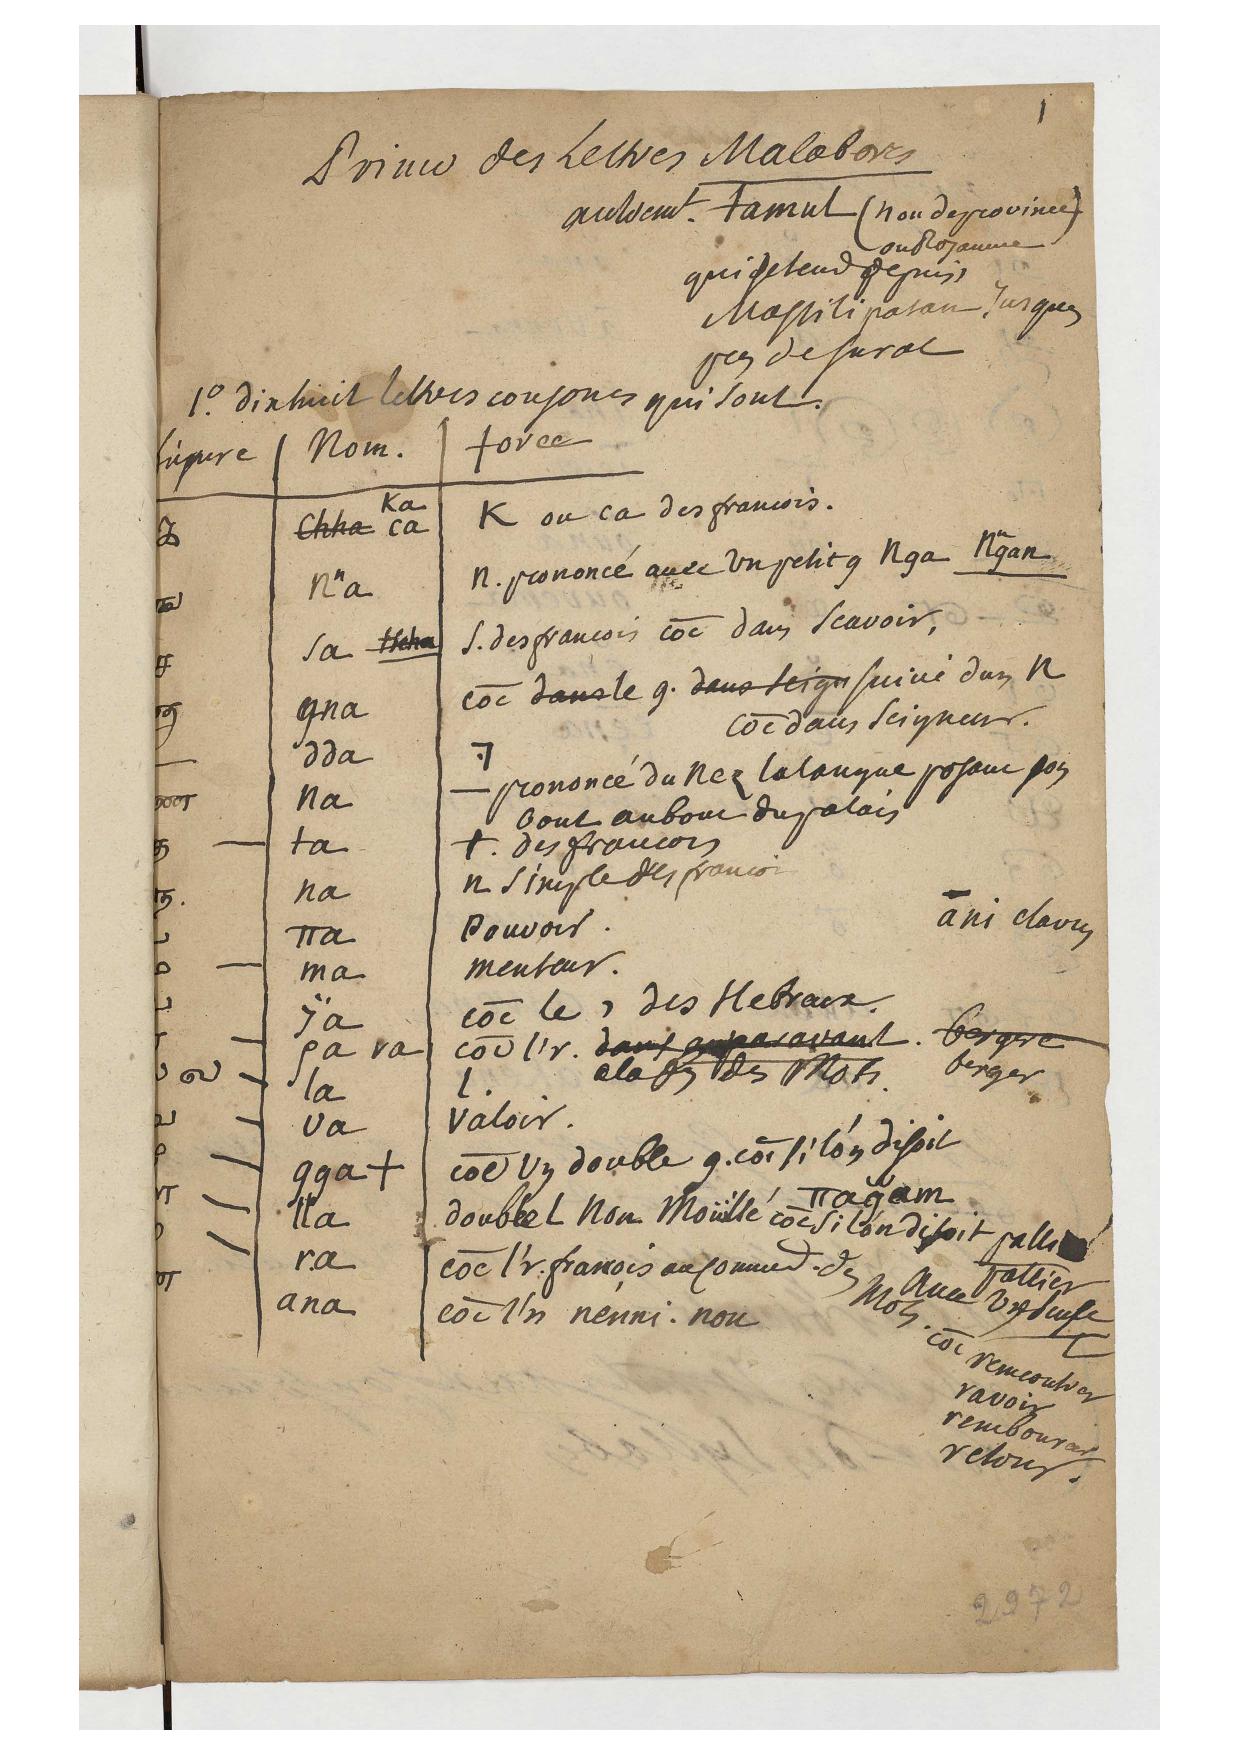 1
des Lettres Malabares
autrement. tamul (nom de province)
ou Royaume
qui s'etend depuis
Massilipatan jusques
pres de surat
1.º dixhuit lettres consones qui sont.
figure | Nom. | force
க Chha Ka ca K ou ca des françois.
ங nⁿa n. prononcé avec un petit g nga nⁿgan
ச sa tscha s. des françois coē dans scavoir,
ஞ gna coē dans le g. dans seign suivi dun n
coē dans seigneur.
dda ד
ண na — prononcé du nez la langue posant son
bout au bout du palais
த — ta t. des francois
ந. na n simple des francois
ப πa pouvoir. āni clavus
ம — ma menteur.
ய ÿa coē le י des Hebreux.
ர ρa ra coē l'r. dans auparavant. bergere
a la fin des Mots. berger
ல la l.
வ va valoir.
ழ gga + coē un double g. coē si lón disoit
πag̃am
ள lla double l non moüillé coē si lón disoit palli
pallier
ற ra coē l'r. françois au commend. des Mots. avec
ன ana coē l'n nénni. non
coē rencontrer
ravoir
rembourser
retour.
2972